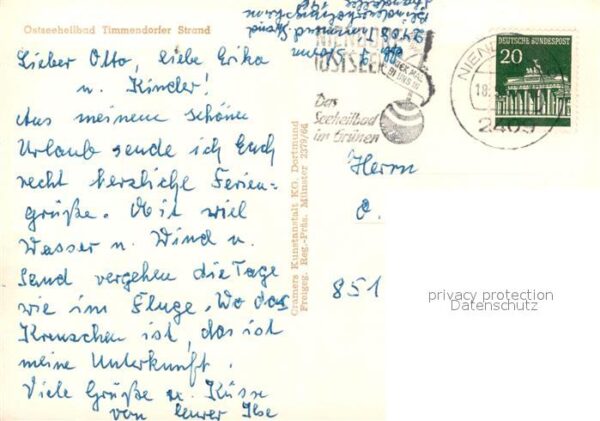 Ostseeheilbad Timmendorfer Strand
Lieber Otto, liebe Erika
u. Kinder!
Aus meinem schönen
Urlaub sende ich Euch
recht herzliche Ferien-
grüße. Mit viel
Wasser u. Wind u.
Sand vergehen die Tage
wie im Fluge. Wo das
Kreuzchen ist, das ist
meine Unterkunft.
Viele Grüße u. Küsse
von Eurer Ilse
Cramers Kunstanstalt KG. Dortmund
Freigeg. Reg.-Präs. Münster 2379/64
OSTSEE
Das
Seeheilbad
im Grünen
NIEN
18.
2409
DEUTSCHE BUNDESPOST
20
Herrn
O.
851
privacy protection
Datenschutz